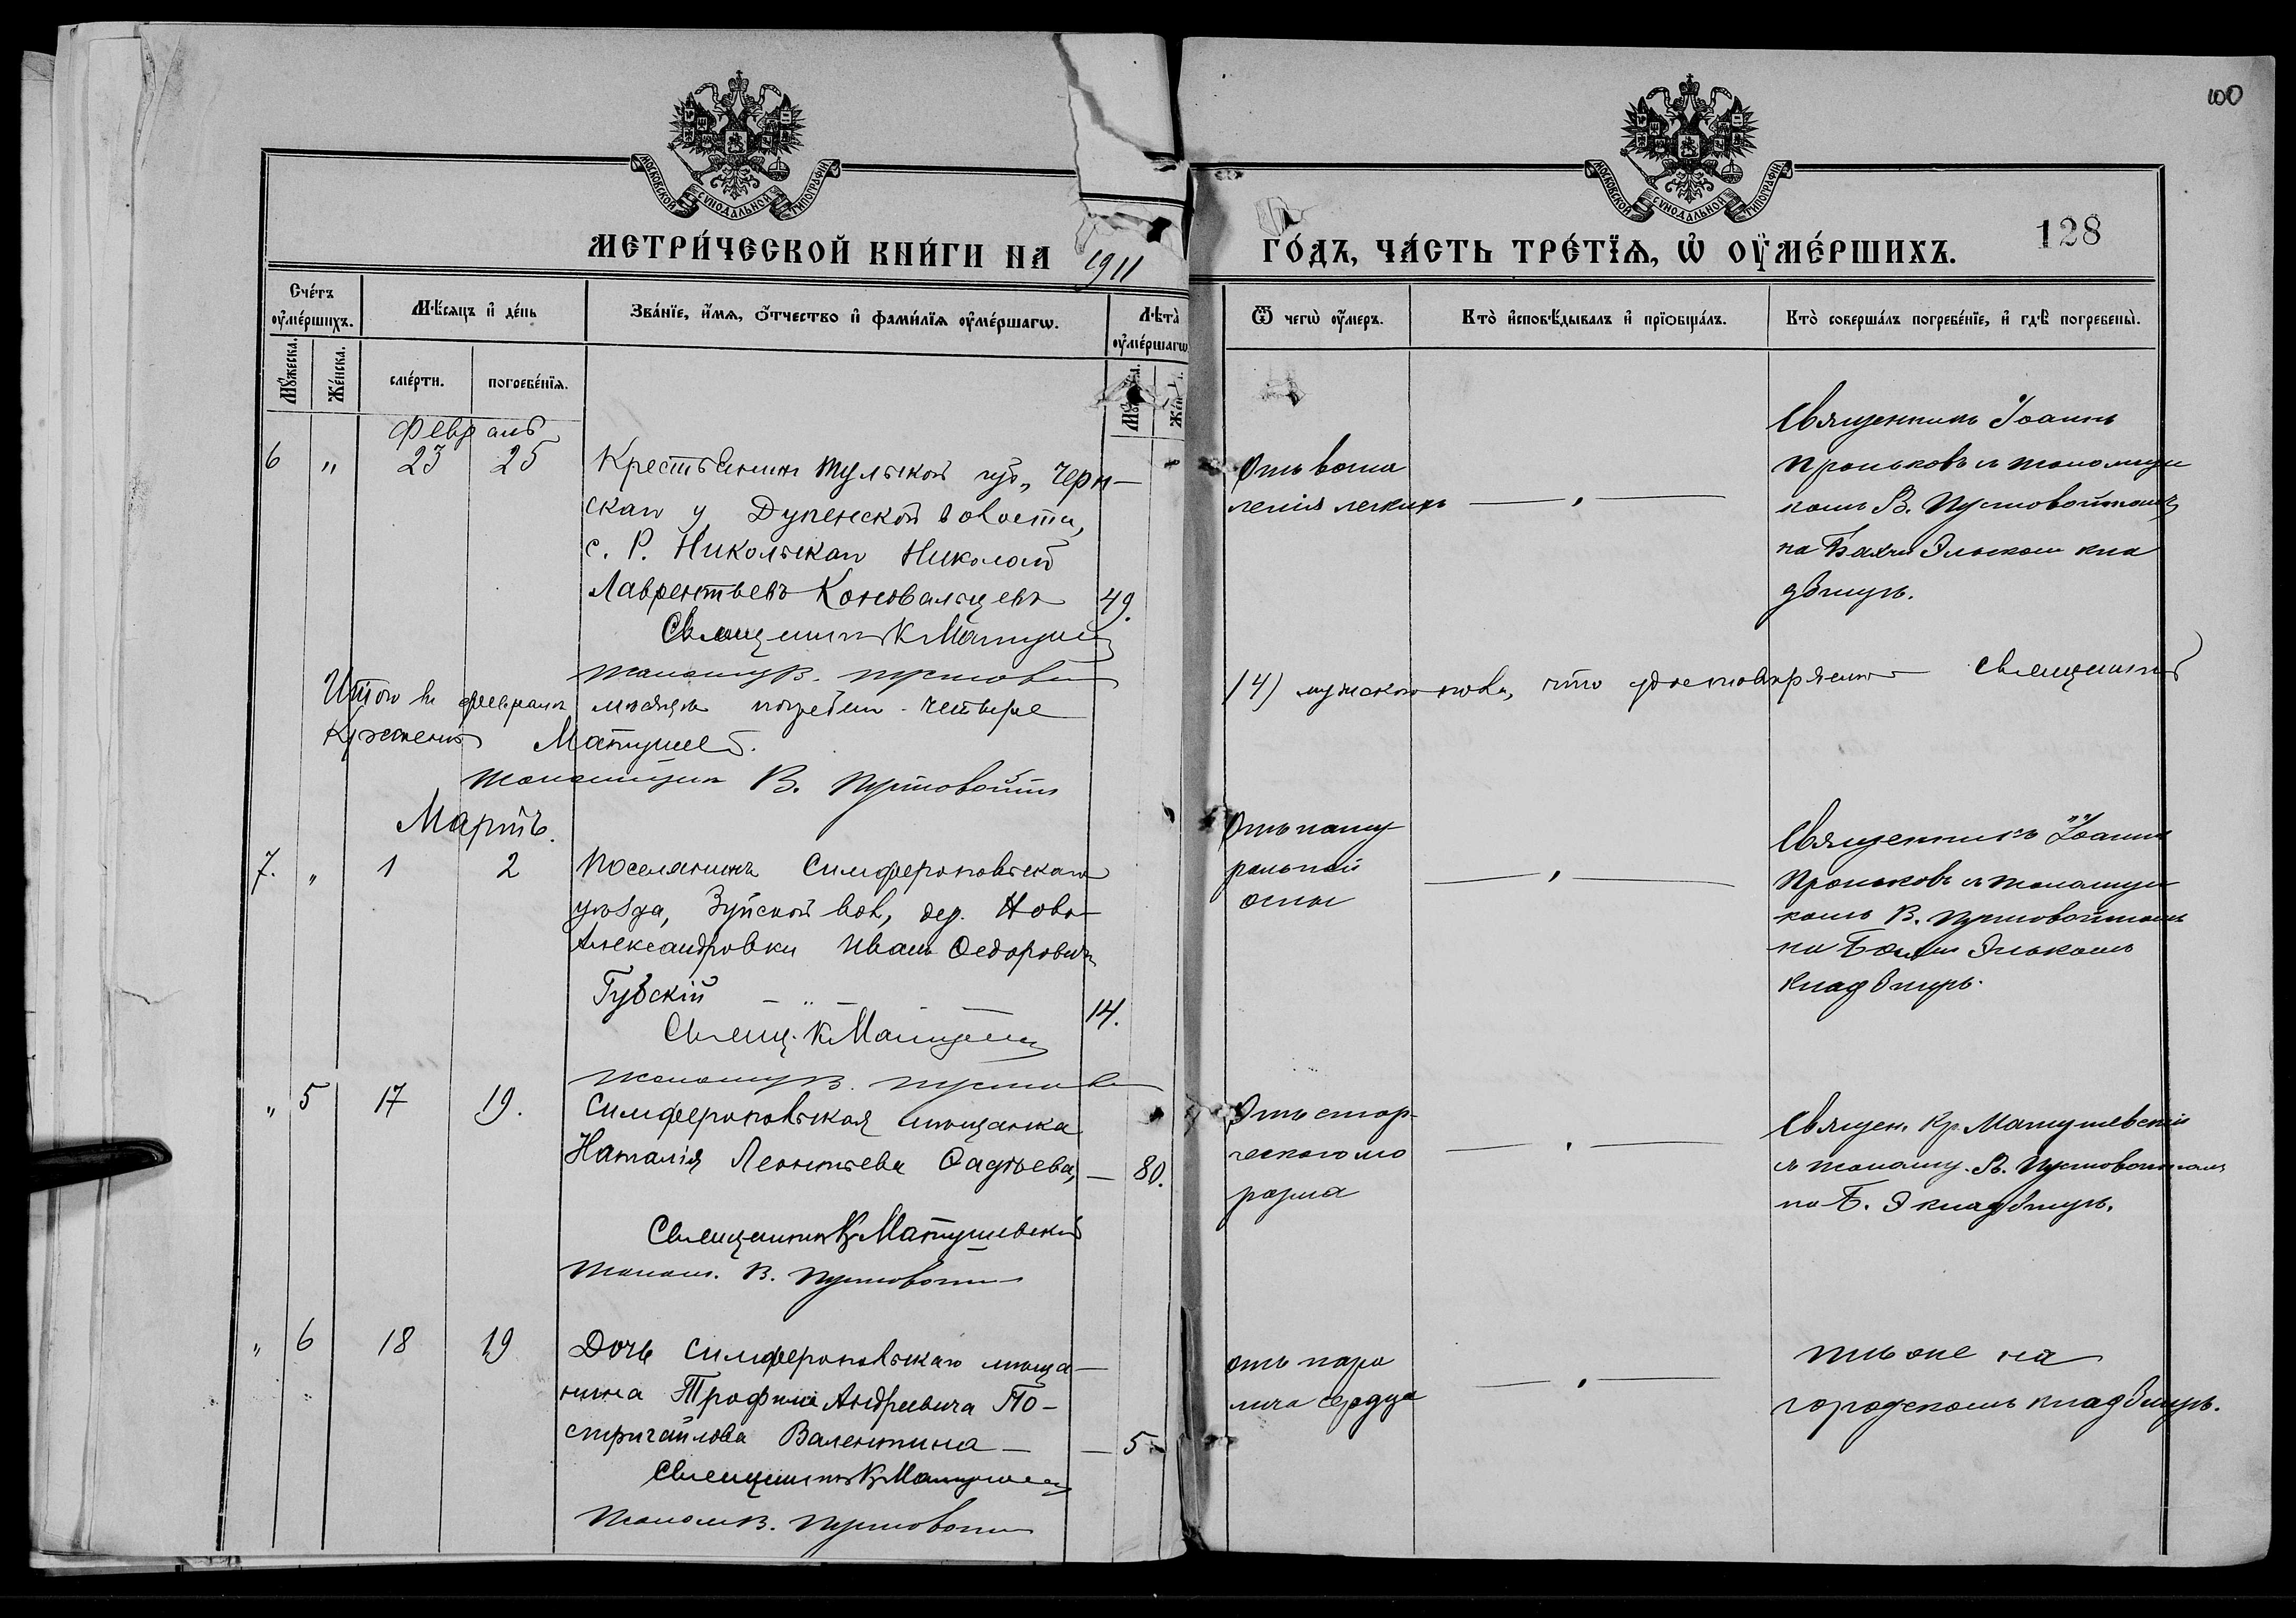 МОСКОВСКОЙ СѴНОДАЛЬНОЙ ТИПОГРАФІИ
МОСКОВСКОЙ СѴНОДАЛЬНОЙ ТИПОГРАФІИ
100
128
МЕТРИ́ЧЕСКОЙ КНИ́ГИ НА 1911 ГО́ДЪ, ЧА́СТЬ ТРЕ́ТЇѦ, Ѡ҆ ОУ҆МЕ́РШИХЪ.
Сче́тъ оу҆ме́ршихъ.
Мꙋ́жеска.
Же́нска.
Мѣ́сѧцъ и҆ де́нь
сме́рти.
погребе́нїѧ.
Зва́нїе, и҆́мѧ, ѻ҆́тчество и҆ фами́лїѧ оу҆ме́ршагѡ.
Лѣта̀ оу҆ме́ршагѡ
Ѿ чегѡ̀ оу҆́меръ.
Кто̀ и҆сповѣ́дывалъ и҆ прїѡбща́лъ.
Кто̀ соверша́лъ погребе́нїе, и҆ гдѣ̀ погребены̀.
Февраль
6 " 23 25
Крестьянинъ Тульской губ., Черн-
скаго у Дупенской волости,
с. Р. Никольскаго Николай
Лаврентьевъ Коновальцевъ 49.
Священникъ К Матушев
псаломщ В. Пустовой
Отъ воспа
ленія легкихъ
Священникъ Іоаннъ
Проньковъ съ псаломщи
комъ В. Пустовойтомъ
на Бахчи Эльскомъ кла
дбищѣ.
Итого въ февралѣ мѣсяцѣ погребен четыре (4) мужского пола, что удостовѣряемъ Священникъ
Матушев.
псаломщикъ В. Пустовойтъ
Мартъ.
7. " 1 2
Поселянинъ Симферопольскаго
уѣзда, Зуйской вол, дер. Ново-
Александровки Иванъ Ѳедоровичъ
Губскій 14.
Свящ. К Матушев
псаломщ В. Пустово
Отъ нату
ральной
оспы
Священникъ Іоаннъ
Проньковъ съ псаломщи
комъ В. Пустовойтомъ
на Бахчи Эльскомъ
кладбищѣ.
" 5 17 19.
Симферопольская мѣщанка
Наталія Леонтьева Фадѣева, — 80.
Священникъ Кр Матушевскій
псалом. В. Пустовойтъ
Отъ стар-
ческаго ма
разма
Священ. Кр. Матушевскій
съ псаломщ. В. Пустовойтомъ
на Б. Э кладбищѣ.
" 6 18 19
Дочь Симферопольскаго мѣща-
нина Трофима Андреевича По-
стригайлова Валентина — — 5
Священникъ Кр Матушев
псалом В. Пустовойтъ
отъ пара
лича сердца
тѣ же на
городскомъ кладбищѣ.